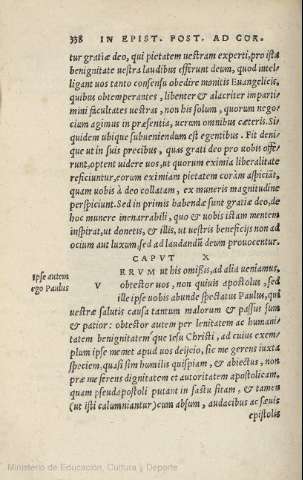 338 IN EPIST. POST. AD COR.
tur gratiæ deo, qui pietatem uestram experti, pro ista
benignitate uestra laudibus efferunt deum, quod intel-
ligant uos tanto consensu obedire monitis Euangelicis,
quibus obtemperantes, libenter & alacriter imparti-
mini facultates uestras, non his solum, quorum nego-
cium agimus in præsentia, uerum omnibus cæteris. Si-
quidem ubique subueniendum est egentibus. Fit deni-
que ut in suis precibus, quas grati deo pro uobis offe-
runt, optent uidere uos, ut quorum eximia liberalitate
reficiuntur, eorum eximiam pietatem coràm aspiciãt,
quam uobis à deo collatam, ex muneris magnitudine
perspiciunt. Sed in primis habendæ sunt gratiæ deo, de
hoc munere inenarrabili, quo & uobis istam mentem
inspirat, ut donetis, & illis, ut uestris beneficijs non ad
ocium aut luxum, sed ad laudandũ deum prouocentur.
CAPVT X
Ipse autem
ego Paulus
V ERVM ut his omißis, ad alia ueniamus,
obtector uos, non quiuis apostolus, sed
ille ipse uobis abunde spectatus Paulus, qui
uestræ salutis causa tantum malorum & passus sum
& patior: obtestor autem per lenitatem ac humani-
tatem benignitatem que Iesu Christi, ad cuius exem-
plum ipse memet apud uos deijcio, sic me gerens iuxta
speciem, quasi sim humilis quispiam, & abiectus, non
præ me ferens dignitatem et autoritatem apostolicam,
quam pseudapostoli putant in fastu sitam, & tamen
(ut isti calumniantur) cum absum, audacibus ac sæuis
epistolis
Ministerio de Educación, Cultura y Deporte